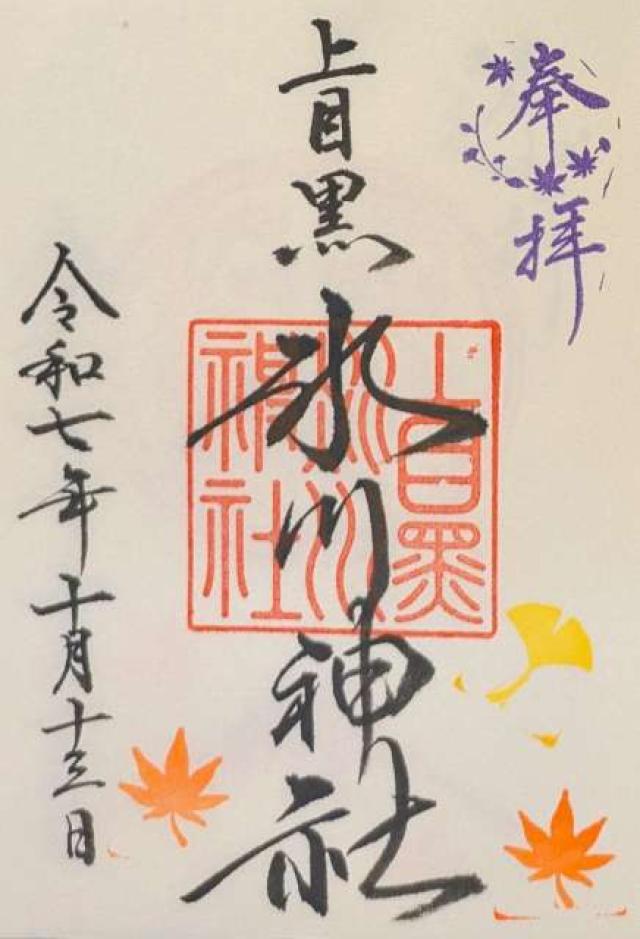 奉拝
上目黒氷川神社
上目黒
氷川
神社
令和七年十月十三日